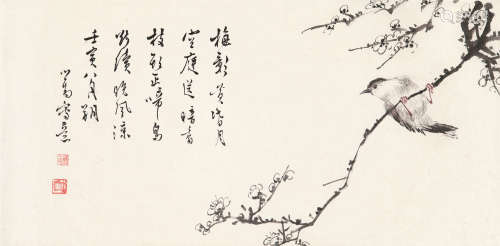 梅影黃昏月
空庭送暗香
枝頭正啼鳥
晚風涼
壬寅八月朔
心畬寫意